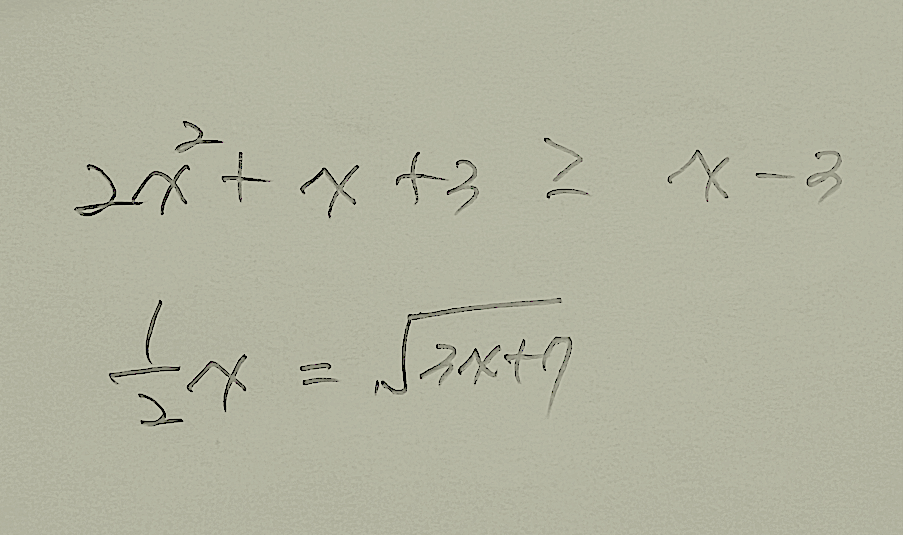 2x² + x + 3 ≥ x - 3
1/2 x = √(3x+7)